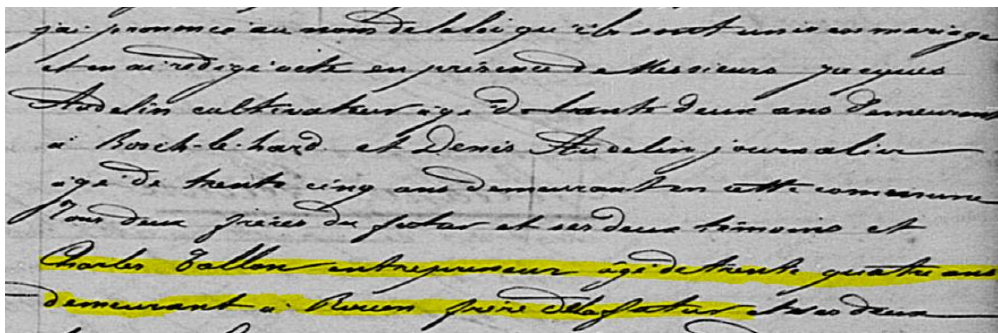 j'ai prononcé au nom de la loi qu'ils sont unis en mariage
et en ai rédigé acte en présence de Messieurs Jacques
Audelin cultivateur âgé de trente deux ans demeurant
à Bosc-le-hard et Denis Audelin journalier
âgé de trente cinq ans demeurant en cette commune
Tous deux frères du futur et ses deux témoins et
Charles Tallon entrepreneur âgé de trente quatre ans
demeurant à Rouen frère de la future et ses deux